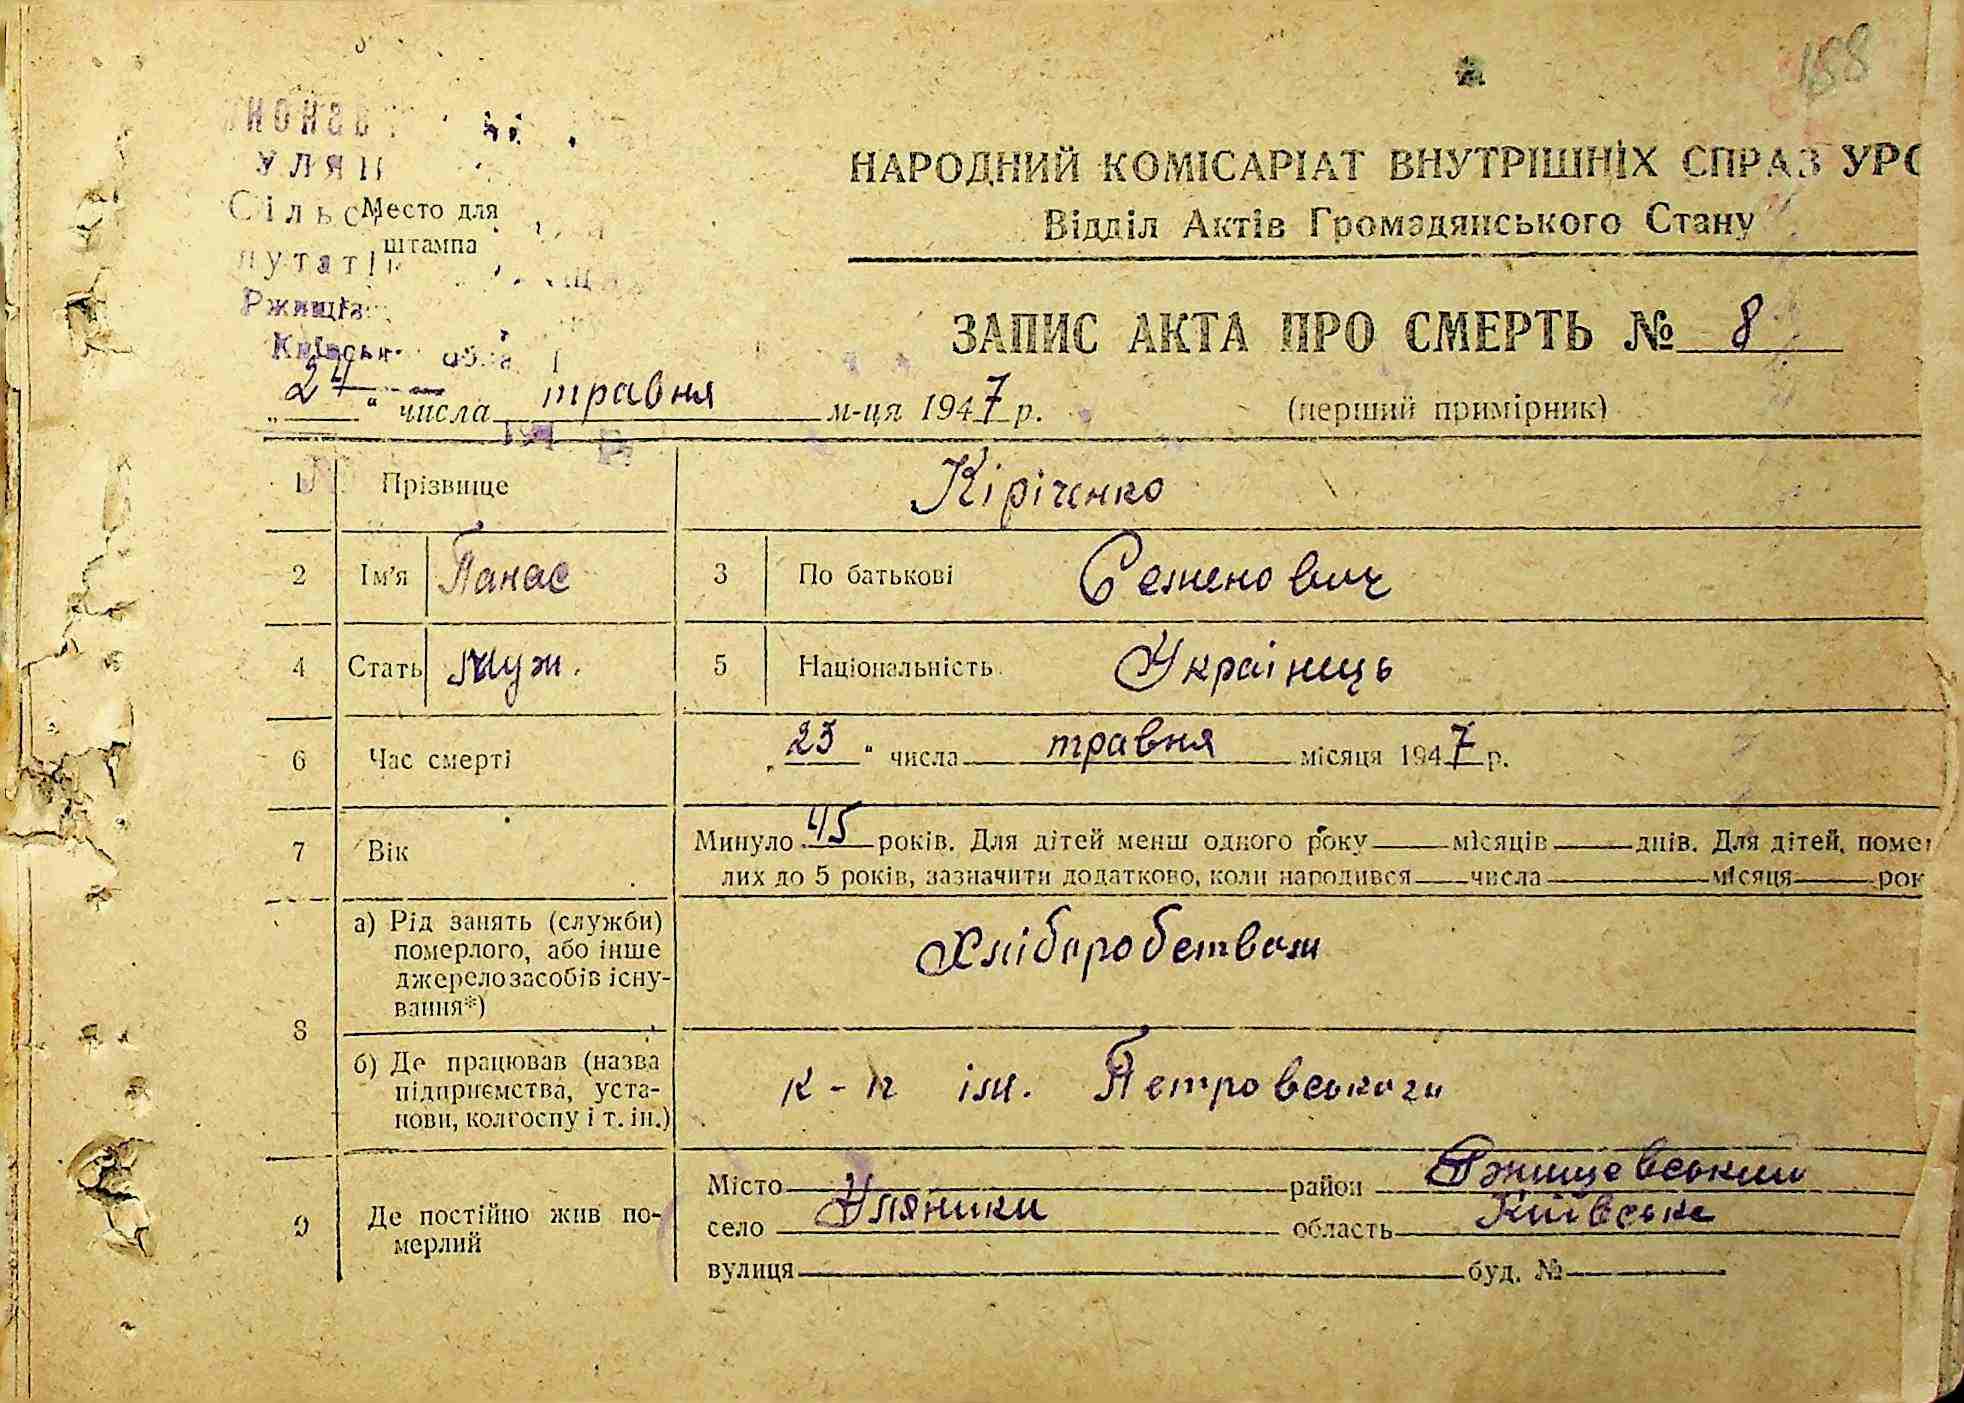 188
УЛЯН
Сільс
Место для
штампа
путаті
Ржищів
Київськ обл
НАРОДНИЙ КОМІСАРІАТ ВНУТРІШНІХ СПРАВ УРС
Відділ Актів Громадянського Стану
ЗАПИС АКТА ПРО СМЕРТЬ № 8
„24“ числа травня м-ця 1947 р. (перший примірник)
1 Прізвище Кіріченко
2 Ім'я Панас 3 По батькові Семенович
4 Стать муж. 5 Національність Українець
6 Час смерті „23“ числа травня місяця 1947 р.
7 Вік Минуло 45 років. Для дітей менш одного року місяців днів. Для дітей, помер
лих до 5 років, зазначити додатково, коли народився числа місяця рок
8 а) Рід занять (служби)
померлого, або інше
джерело засобів існу-
вання*)
Хліборобством
б) Де працював (назва
підприємства, уста-
нови, колгоспу і т. ін.)
к-п ім. Петровського
9 Де постійно жив по-
мерлий
Місто район Ржищевський
село Уляники область Київська
вулиця буд. №